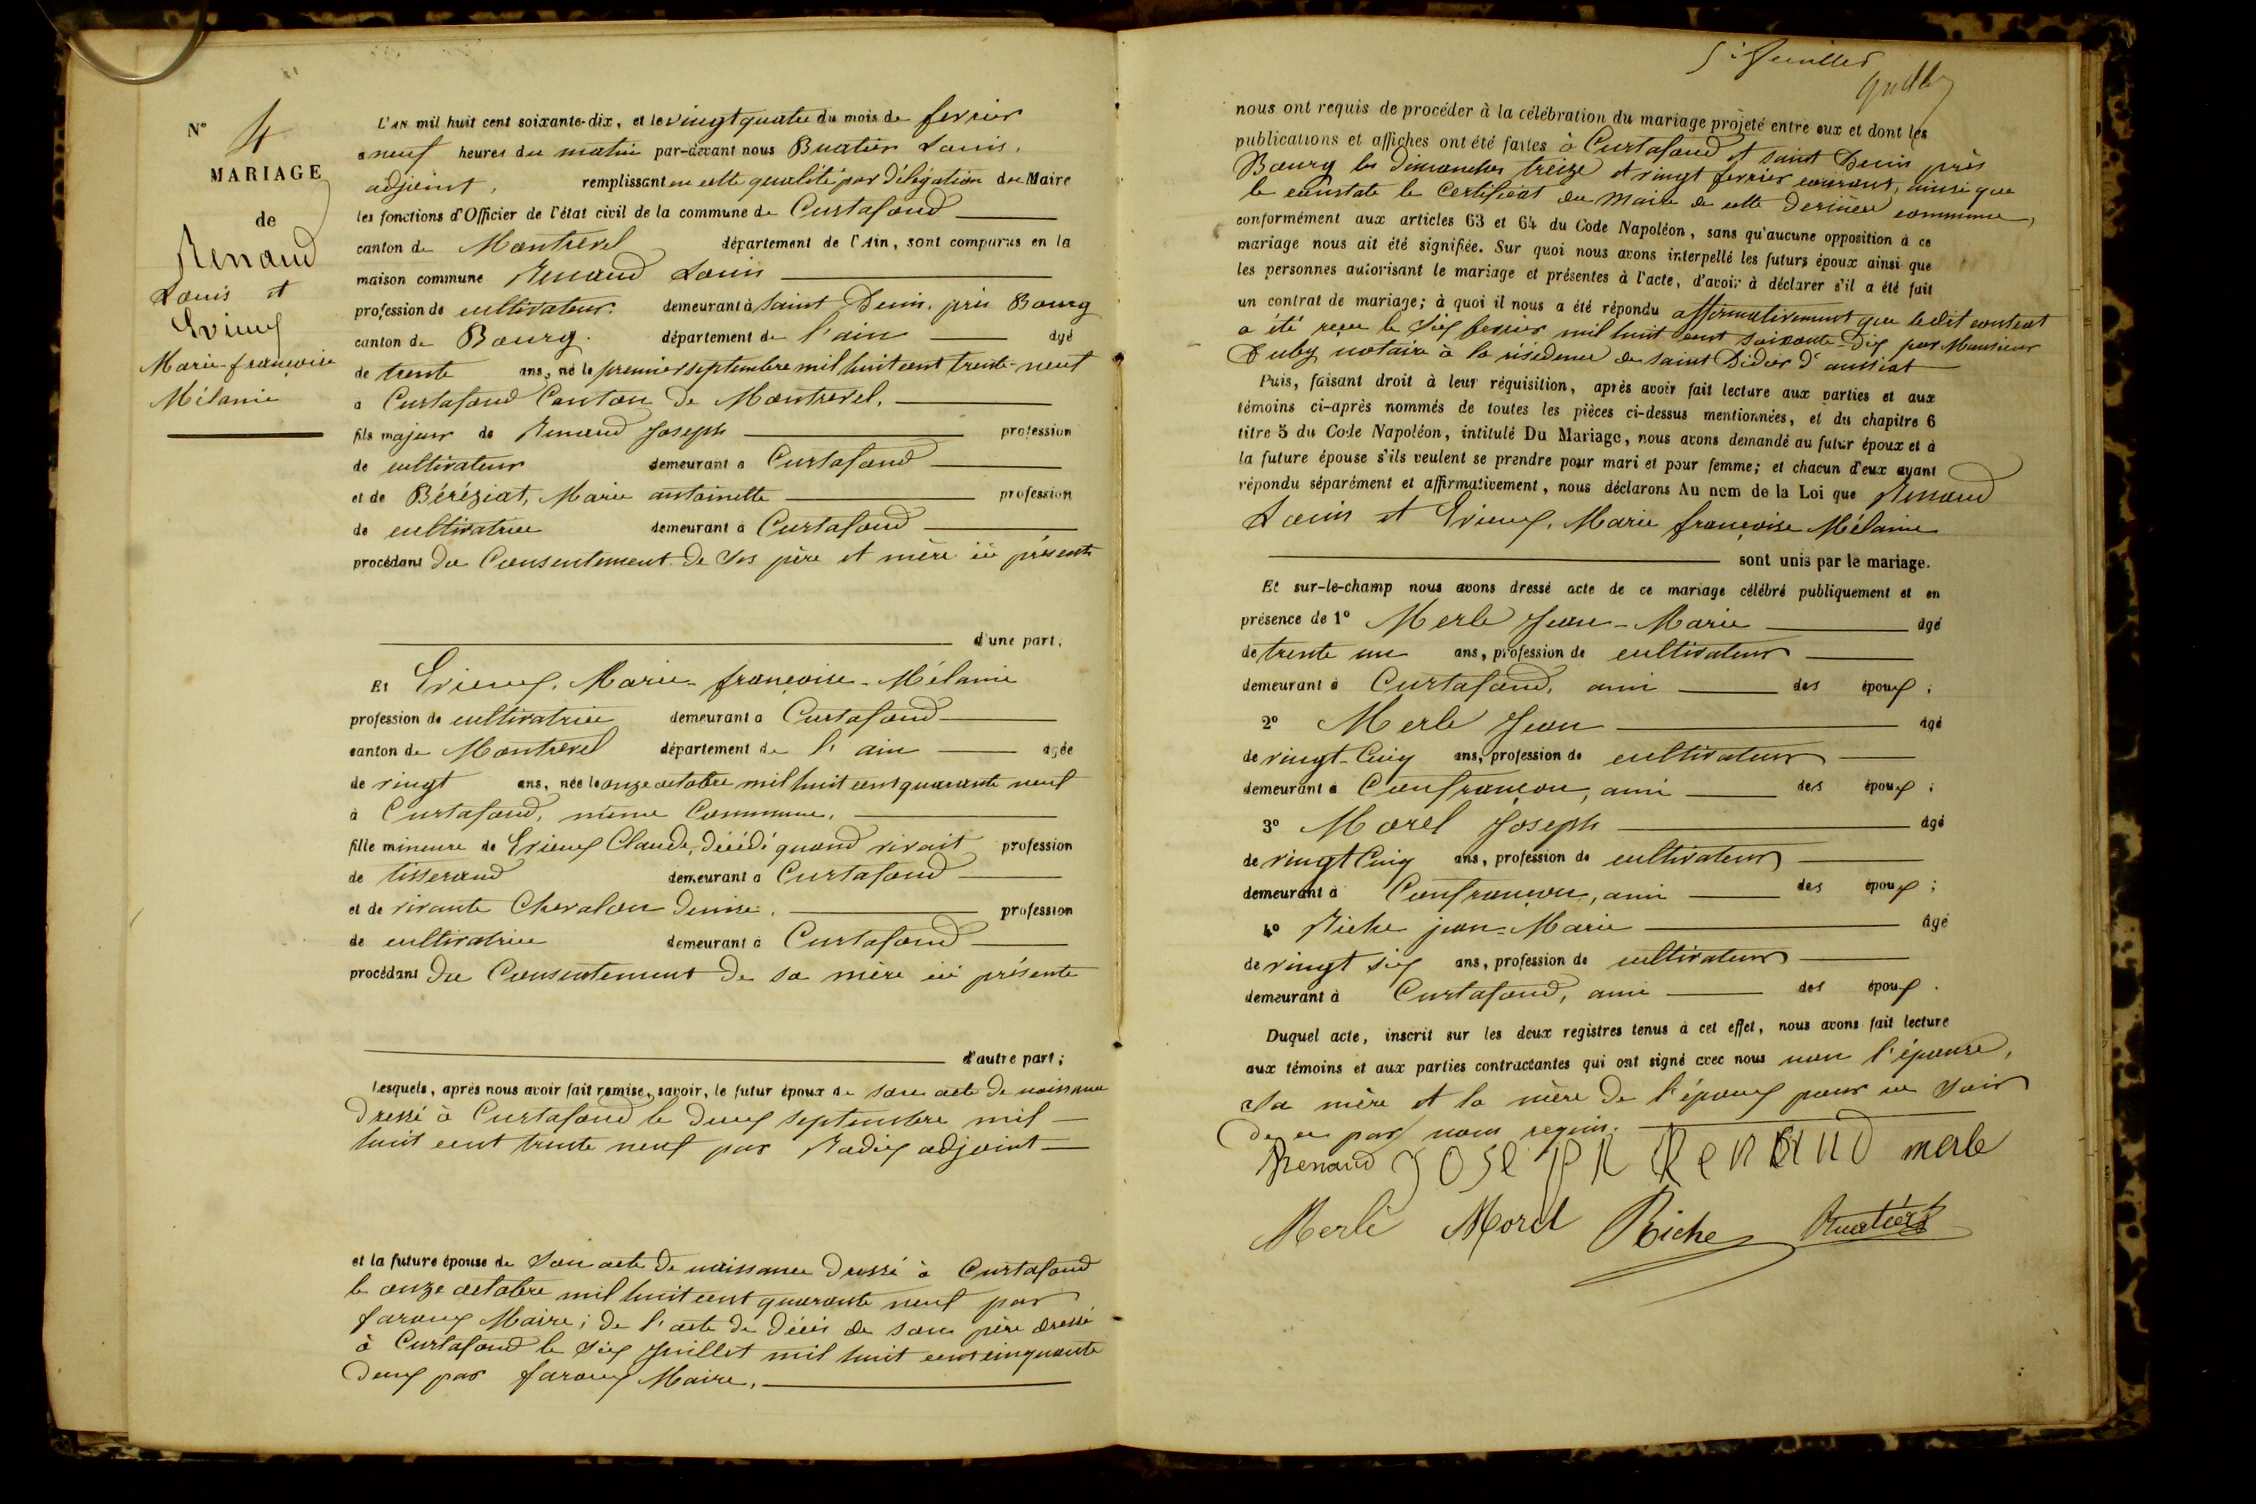 N° 4
MARIAGE
de
Renaud
Louis et
Evieux
Marie françoise
Mélanie
L'AN mil huit cent soixante-dix, et le vingt quatre du mois de fevrier
a neuf heures du matin par-devant nous Buatier Louis,
adjoint, remplissant en cette qualité par délégation du Maire
les fonctions d'Officier de l'état civil de la commune de Curtafond
canton de Montrevel département de l'Ain, sont comparus en la
maison commune Renaud Louis
profession de cultivateur demeurant à Saint Denis, près Bourg
canton de Bourg département de l'ain âgé
de trente ans, né le premier septembre mil huit cent trente-neuf
à Curtafond Canton de Montrevel,
fils majeur de Renaud Joseph profession
de cultivateur demeurant à Curtafond
et de Béréziat, Marie antoinette profession
de cultivatrice demeurant à Curtafond
procédant du Consentement de ses père et mère ici présents
d'une part,
Et Evieux, Marie-françoise-Mélanie
profession de cultivatrice demeurant à Curtafond
canton de Montrevel département de l'ain âgée
de vingt ans, née le onze octobre mil huit cent quarante neuf
à Curtafond, même Commune,
fille mineure de Evieux Claude, décédé quand vivait profession
de tisserand demeurant à Curtafond
et de vivante Chevalon Denise, profession
de cultivatrice demeurant à Curtafond
procédant du Consentement de sa mère ici présente
d'autre part;
Lesquels, après nous avoir fait remise, savoir, le futur époux de son acte de naissance
dressé à Curtafond le deux septembre mil
huit cent trente neuf par Radix adjoint
et la future épouse de son acte de naissance dressé à Curtafond
le onze octobre mil huit cent quarante neuf par
faroux Maire; de l'acte de décès de son père dressé
à Curtafond le six Juillet mil huit cent cinquante
deux par faroux Maire,
nous ont requis de procéder à la célébration du mariage projeté entre eux et dont les
publications et affiches ont été faites à Curtafond et saint Denis près
Bourg les dimanches treize et vingt fevrier courant, ainsi que
le constate le Certificat du Maire de cette dernière commune,
conformément aux articles 63 et 64 du Code Napoléon, sans qu'aucune opposition à ce
mariage nous ait été signifiée. Sur quoi nous avons interpellé les futurs époux ainsi que
les personnes autorisant le mariage et présentes à l'acte, d'avoir à déclarer s'il a été fait
un contrat de mariage; à quoi il nous a été répondu affirmativement que ledit contrat
a été reçu le six fevrier mil huit cent soixante-dix par Monsieur
Duby notaire à la résidence de saint Didier d'aussiat
Puis, faisant droit à leur réquisition, après avoir fait lecture aux parties et aux
témoins ci-après nommés de toutes les pièces ci-dessus mentionnées, et du chapitre 6
titre 5 du Code Napoléon, intitulé Du Mariage, nous avons demandé au futur époux et à
la future épouse s'ils veulent se prendre pour mari et pour femme; et chacun d'eux ayant
répondu séparément et affirmativement, nous déclarons Au nom de la Loi que Renaud
Louis et Evieux, Marie françoise Mélanie
sont unis par le mariage.
Et sur-le-champ nous avons dressé acte de ce mariage célébré publiquement et en
présence de 1° Merle Jean-Marie âgé
de trente un ans, profession de cultivateur
demeurant à Curtafond, ami des époux;
2° Merle Jean âgé
de vingt-Cinq ans, profession de cultivateur
demeurant à Confrançon, ami des époux;
3° Morel Joseph âgé
de vingt Cinq ans, profession de cultivateur
demeurant à Confrançon, ami des époux;
4° Riche jean-Marie âgé
de vingt six ans, profession de cultivateur
demeurant à Curtafond, ami des époux.
Duquel acte, inscrit sur les deux registres tenus à cet effet, nous avons fait lecture
aux témoins et aux parties contractantes qui ont signé avec nous non l'épouse,
sa mère et la mère de l'époux pour ne savoir
de ce par nous requis.
Renaud Joseph Renaud merle
Merle Morel Riche Buatier